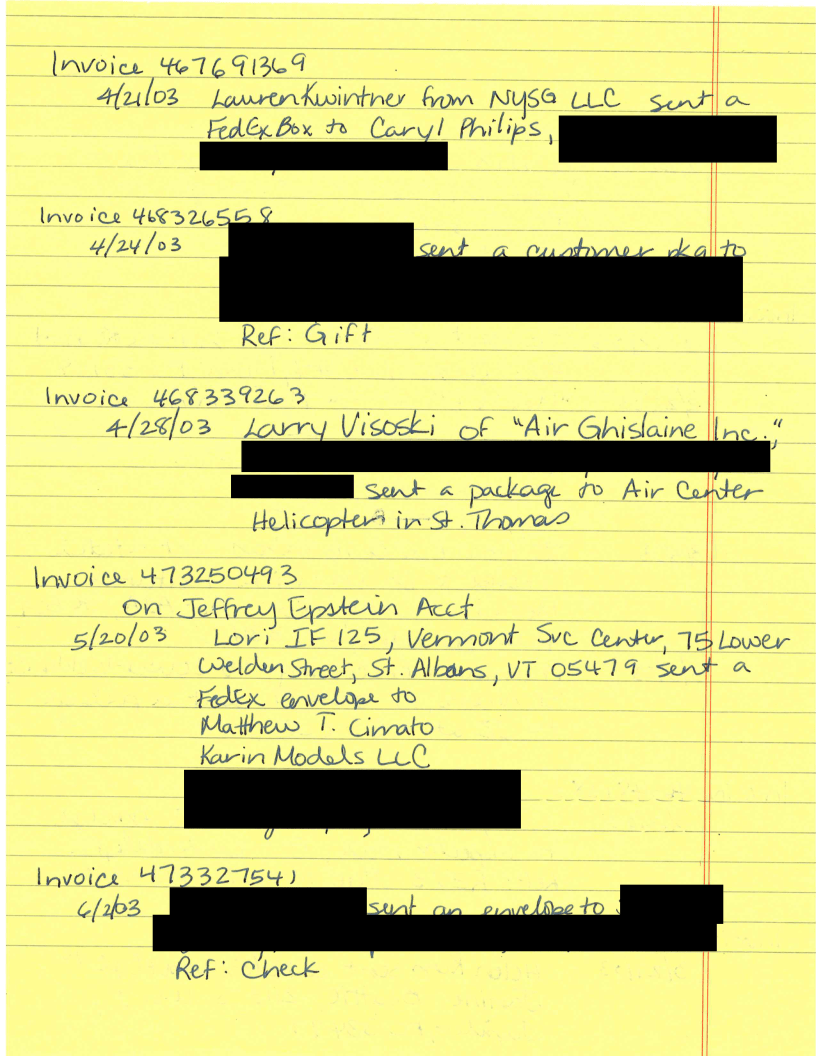 Invoice 467691369
4/21/03 Lauren Kwintner from NYSG LLC sent a
FedEx Box to Caryl Philips,
Invoice 468326558
4/24/03 sent a customer pkg to
Ref: Gift
Invoice 468339263
4/28/03 Larry Visoski of "Air Ghislaine Inc.,"
sent a package to Air Center
Helicopters in St. Thomas
Invoice 473250493
On Jeffrey Epstein Acct
5/20/03 Lori IF 125, Vermont Svc Center, 75 Lower
Welden Street, St. Albans, VT 05479 sent a
FedEx envelope to
Matthew T. Cimato
Karin Models LLC
Invoice 473327541
6/2/03 sent an envelope to
Ref: Check